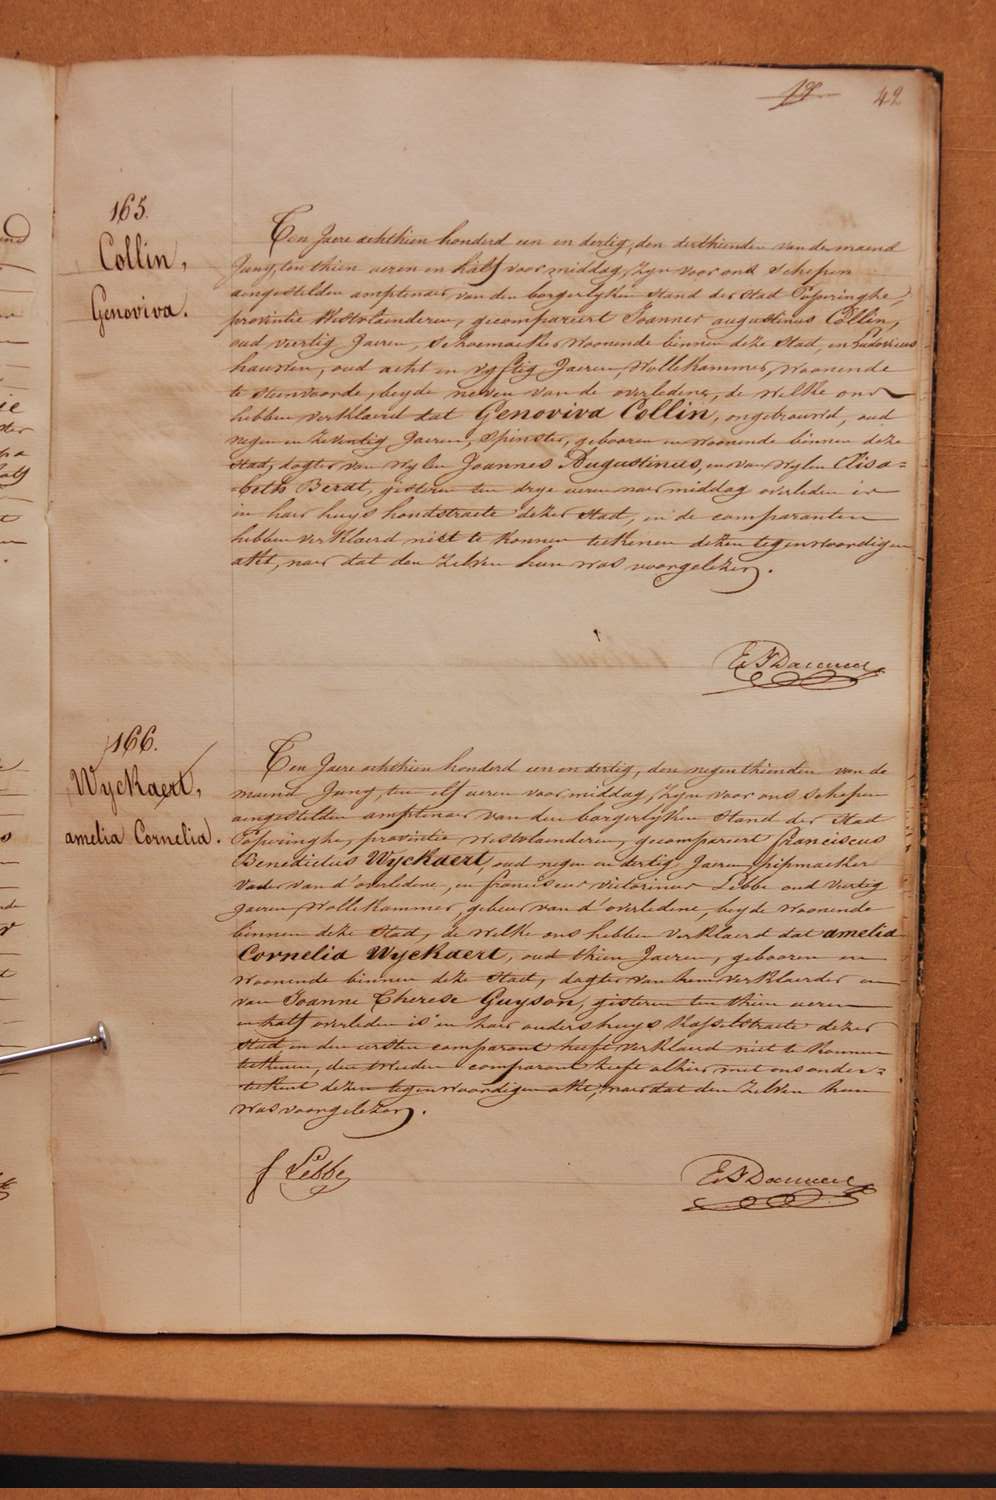 42
165.
Collin,
Genoviva.
Ten Jaere achthien honderd een en dertig, den derthienden van de maend
Juny, ten thien ueren en half voormiddag, Zyn voor ons schepen
aengestelden amptenaer van den borgerlyken stand der stad Poperinghe,
provintie Westvlaenderen, gecompareert Joannes augustinus Collin,
oud veertig Jaeren, schoemaeker woonende binnen deze Stad, en Ludovicus
oud acht en vyftig Jaeren, Wollekammer, woonende
te Steenvoorde, beyde neven van de overledene, de welke ons
hebben verklaerd dat Genoviva Collin, ongetrouwd, oud
negen en zeventig Jaeren, Spinster, gebooren en woonende binnen deze
stad, dogter van wylen Joannes Augustinus, en van wylen Elisa=
=beth Berat, gisteren ten drye ueren naer middag overleden is
in haer huys hondstraete dezer Stad, en de comparanten
hebben verklaerd niet te konnen teekenen dezen tegenwoordigen
akt, naer dat den zelven hun was voorgelezen.
166.
Wyckaert,
amelia Cornelia.
Ten Jaere achthien honderd een en dertig, den negenthienden van de
maend Juny, ten elf ueren voormiddag, Zyn voor ons schepen
aengestelden amptenaer van den borgerlyken Stand der Stad
Poperinghe, provintie westvlaenderen, gecompareert franciscus
Benedictus Wyckaert, oud negen en dertig Jaeren, pipmaeker
Vader van d'overledene, en franciscus victorinus Lebbe oud veertig
Jaeren, Wollekammer, gebuer van d'overledene, beyde woonende
binnen deze Stad, de welke ons hebben verklaerd dat amelia
Cornelia Wyckaert, oud thien Jaeren, gebooren en
woonende binnen deze Stad, dogter van hem verklaerder en
van Joanne Therese Guyson, gisteren ten thien ueren
en half overleden is in haer ouders huys Kasselstraete dezer
stad en den eersten comparant heeft verklaerd niet te konnen
teekenen, den tweeden comparant heeft alhier met ons onder=
=teekent dezen tegenwoordigen akt, naer dat den zelven hun
was voorgelezen.
f Lebbe